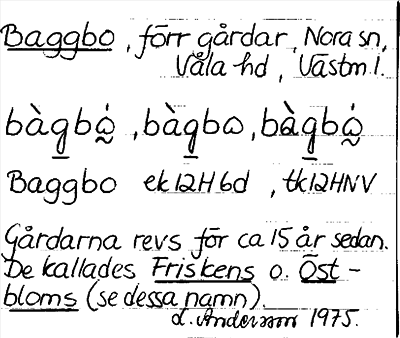 Baggbo, förr gårdar, Nora sn,
Våla hd, Västm l.
bàg̲bω̣̇, bàg̲bω, bàg̲bω̣̇
Baggbo ek 12H 6d, tk 12HNV
Gårdarna revs för ca 15 år sedan.
De kallades Friskens o. Öst-
bloms (se dessa namn).
d. Andersson 1975.